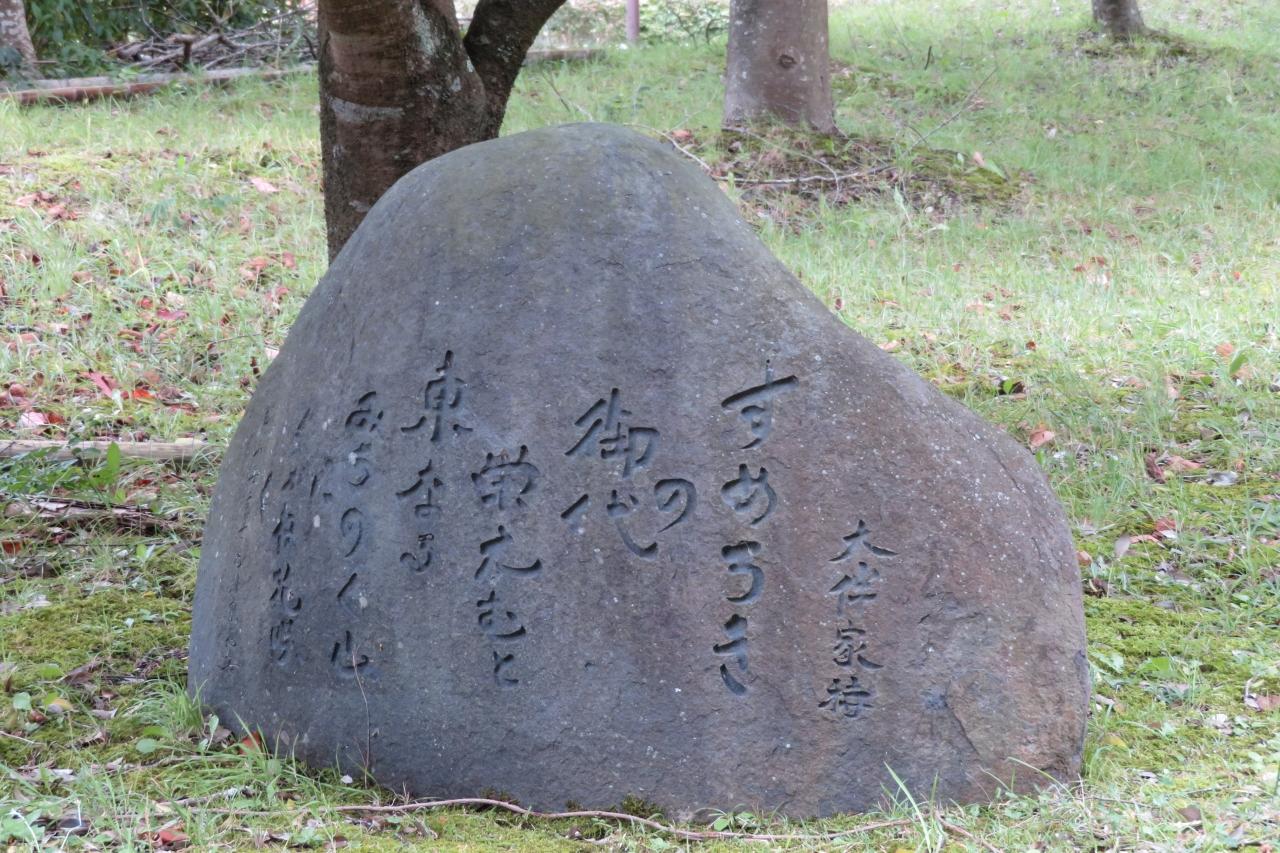 大伴家持
すめろき
の
御代
栄えむと
東なる
みちのく山
に
花咲